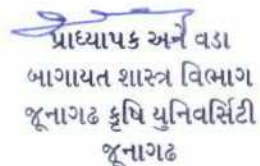 પ્રાધ્યાપક અને વડા
બાગાયત શાસ્ત્ર વિભાગ
જૂનાગઢ કૃષિ યુનિવર્સિટી
જૂનાગઢ